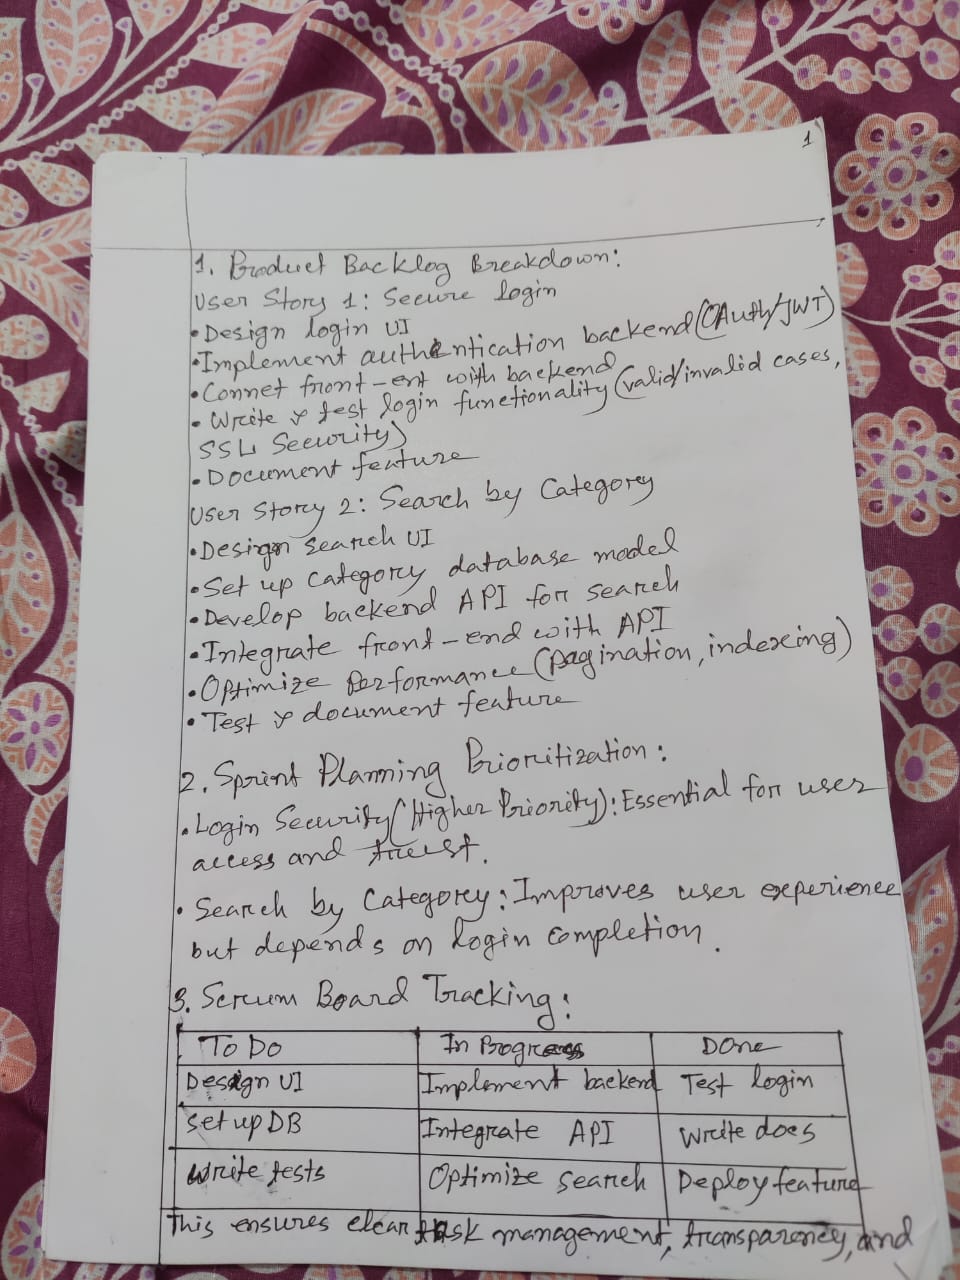 1
1. Product Backlog Breakdown:
User Story 1: Secure login
• Design login UI
• Implement authentication backend (OAuth/JWT)
• Connet front-ent with backend
• Write & test login functionality (valid/invalid cases,
SSL Security)
• Document feature
User Story 2: Search by Category
• Design search UI
• Set up category database model
• Develop backend API for search
• Integrate front-end with API
• Optimize performance (pagination, indexing)
• Test & document feature
2. Sprint Planning Prioritization:
• Login Security (Higher Priority): Essential for user
access and trust.
• Search by Category: Improves user experience
but depends on login completion.
3. Scrum Board Tracking:
To Do In Progress Done
Design UI Implement backend Test login
Set up DB Integrate API Write docs
Write tests Optimize search Deploy feature
This ensures clear task management, transparency, and